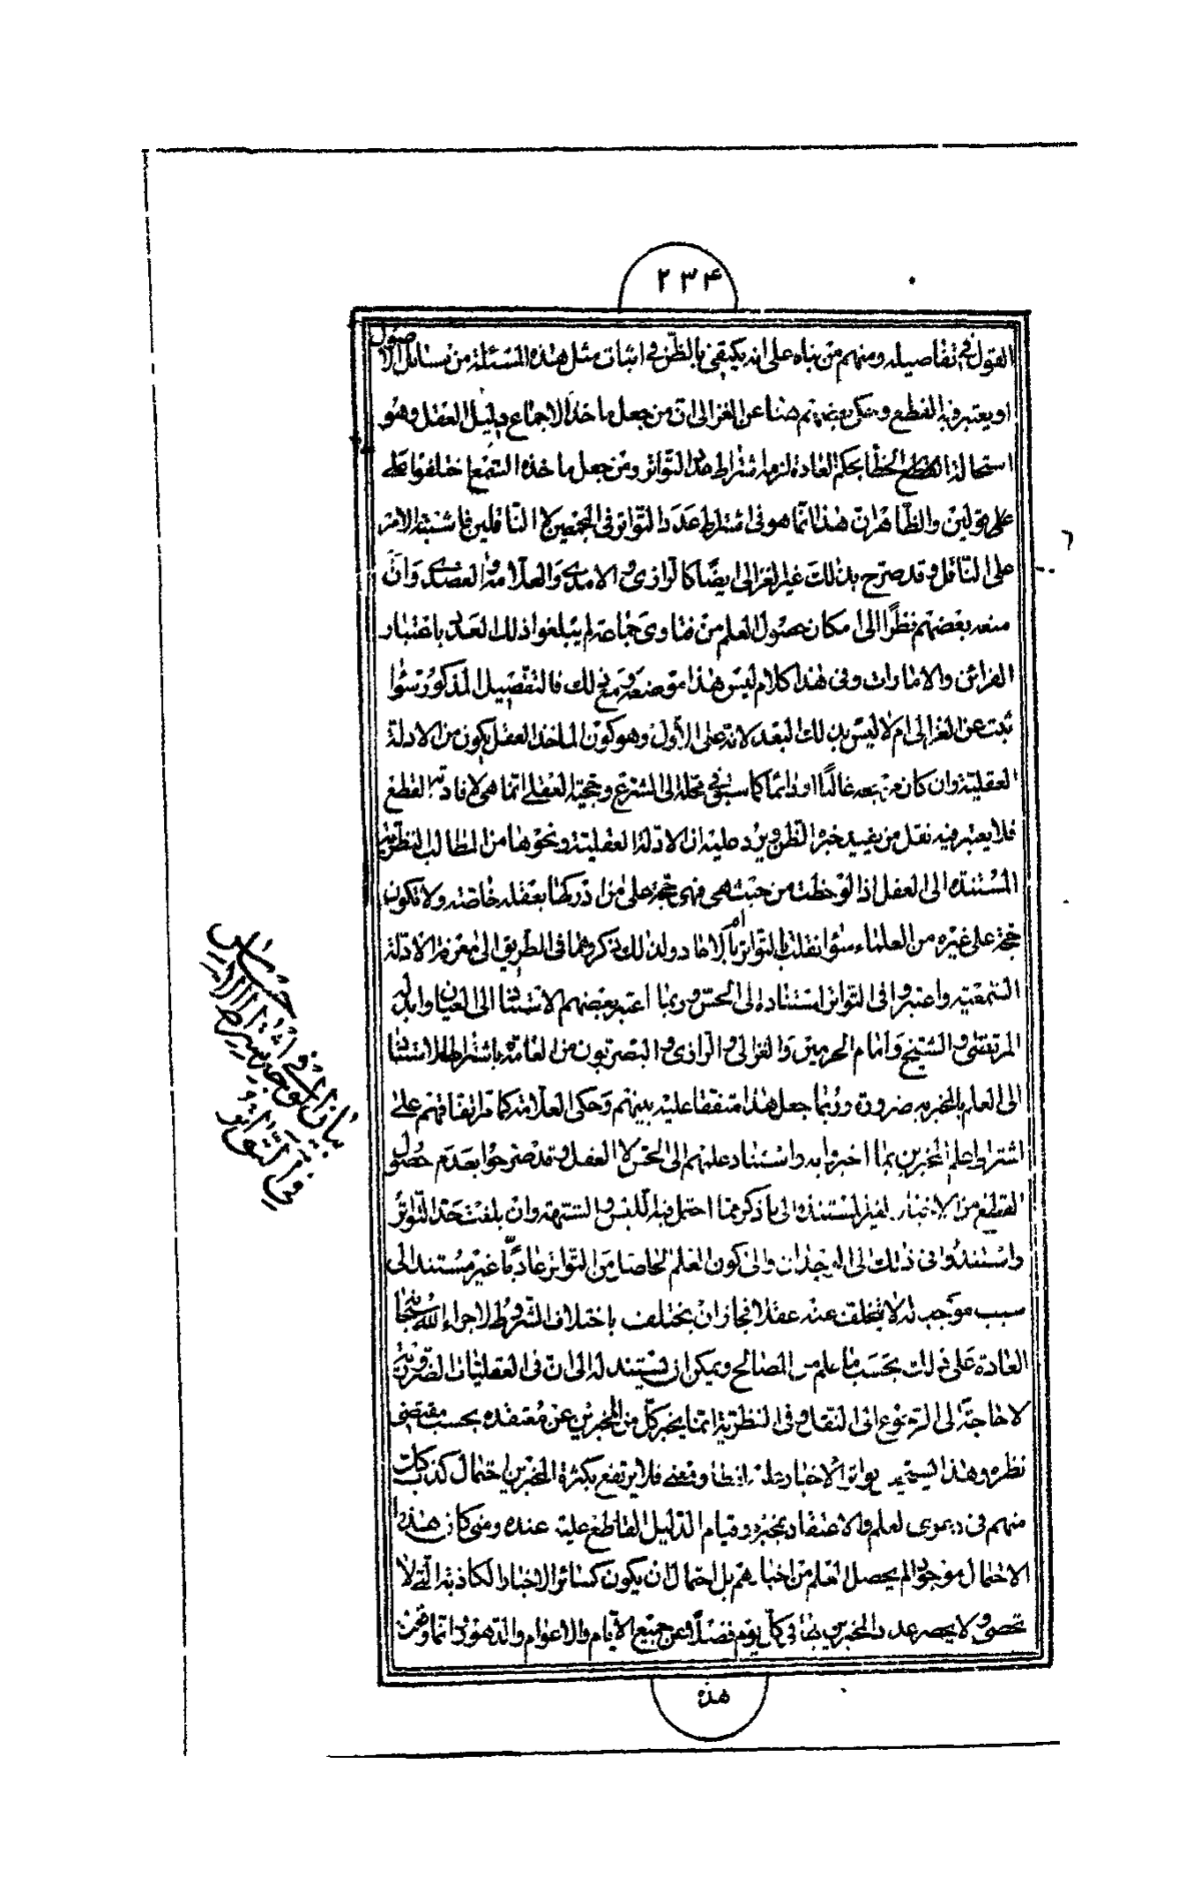 ٢٣۴
القول في تفاصيله ومنهم من بناه على انه يكتفي بالظن في اثبات مثل هذه المسئلة من مسائل الاصول
او يعتبر فيه القطع وحكى بعضهم هنا عن الغزالي ان من جعل ماخذ الاجماع دليل العقل وهو
استحالة الخطأ بحكم العادة لزمه اشتراط عدد التواتر ومن جعل ماخذه السمع اختلفوا
على قولين والظاهر ان هذا انما هو في اشتراط عدد التواتر في المجمعين لا الناقلين فاشتبه الامر
على الناقل وقد صرح بذلك غير الغزالي ايضا كالرازي والامدي والعلامة والعضدي وان
منعه بعضهم نظرا الى امكان حصول العلم من فتاوى جماعة لم يبلغوا ذلك العدد باعتبار
القرائن والامارات وفي هذا كلام ليس هذا موضعه ومع ذلك فالتفصيل المذكور سواء
ثبت عن الغزالي ام لا ليس بذلك البعد لانه على الأول وهو كون الماخذ العقل يكون من الادلة
العقلية وان كان مرجعه غالبا او دائما كما سبق في محله الى الشرع وحجية العقلي انما هي لافادته القطع
فلا يعتبر فيه نقل من يفيد خبره الظن ويرد عليه ان الادلة العقلية ونحوها من المطالب النظرية
المستندة الى العقل اذا لوحظت من حيث هي فهي حجة على من ادركها بعقله خاصة ولا تكون
حجة على غيره من العلماء سواء نقلت بالتواتر ام بالاحاد ولذلك لم يذكروهما في الطريق الى معرفة الادلة
السمعية واعتبروا في التواتر استناده الى الحس وربما اعتبر بعضهم الاستناد الى العيان وابدله
المرتضى والشيخ وامام الحرمين والغزالي والرازي والبصريون من العامة باشتراط الاستناد
الى العلم بالمخبر به ضرورة وربما جعل هذا متفقا عليه بينهم وحكى العلامة كما مر اتفاقهم على
اشتراط علم المخبرين بما اخبروا به واستناد علمهم الى الحس لا العقل وقد صرحوا بعدم حصول
القطع من الاخبار الغير المستندة الى ما ذكر مما احتمل فيه اللبس والشبهة وان بلغت حد التواتر
واستندوا في ذلك الى الوجدان والى كون العلم الحاصل من التواتر عاديا غير مستند الى
سبب موجب له لا يتخلف عنه عقلا فجاز ان يختلف باختلاف الشروط لاجراء الله سبحانه
العادة على ذلك بحسب ما علم من المصالح ويمكن ان يستند له الى ان في العقليات الضرورية
لا حاجة الى الرجوع الى النقل وفي النظرية انما يخبر كل من المخبرين عن معتقده بحسب مقتضى
نظره وهذا يستحيل تواتر الاخبار عليه لفظا ومعنى فلا يرتفع بكثرة المخبرين احتمال كذب كل
منهم في دعوى العلم والاعتقاد بمخبره وقيام الدليل القاطع عليه عنده ومتى كان هذا
الاحتمال موجودا لم يحصل العلم من اخبارهم بل احتمال ان يكون كسائر الاخبار الكاذبة التي لا
تحصى ولا يحصر عدد المخبرين بها في كل يوم فضلا عن جميع الايام والاعوام والدهور انما
هذه
بيان
في التواتر